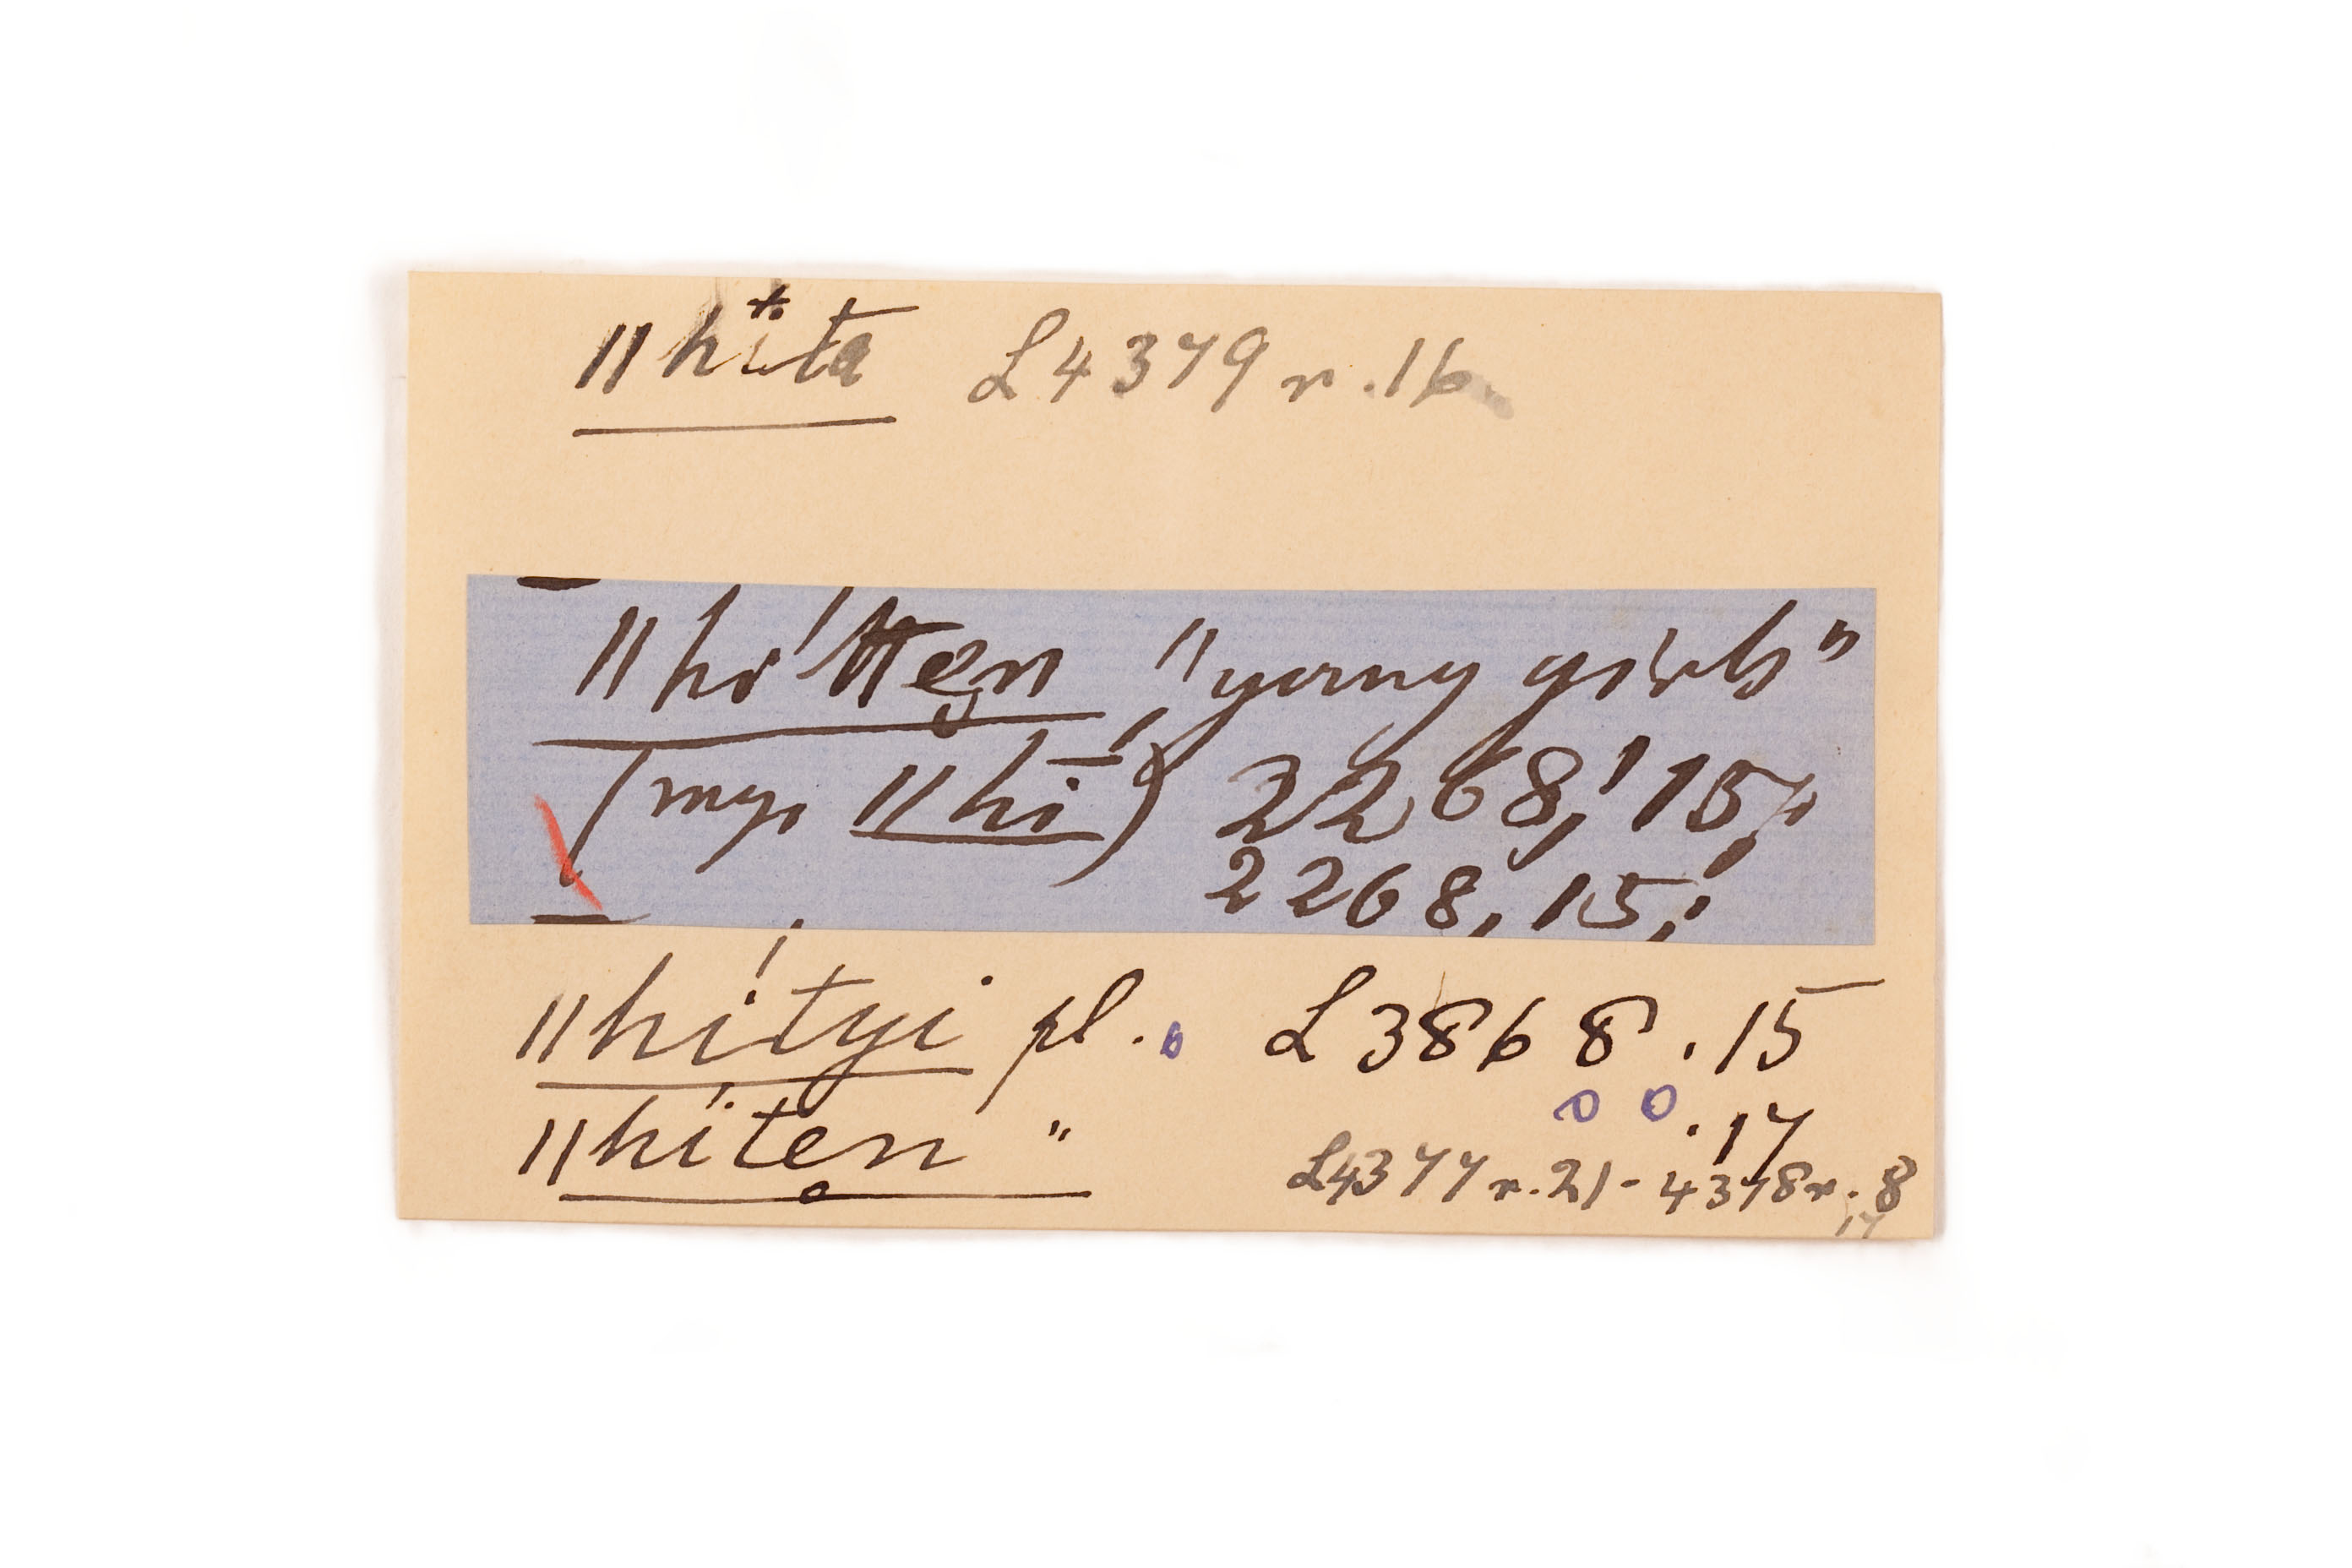 ǁhíta L4379 r. 16
ǁhí'ttẹn "young girls"
(my. ǁhī́) 2268,' 15;
2268, 15;'
ǁhí'tyi pl. L3868 . 15
ǁhítẹn " . 17
L4377 r. 21 - 4378 r. 8
17